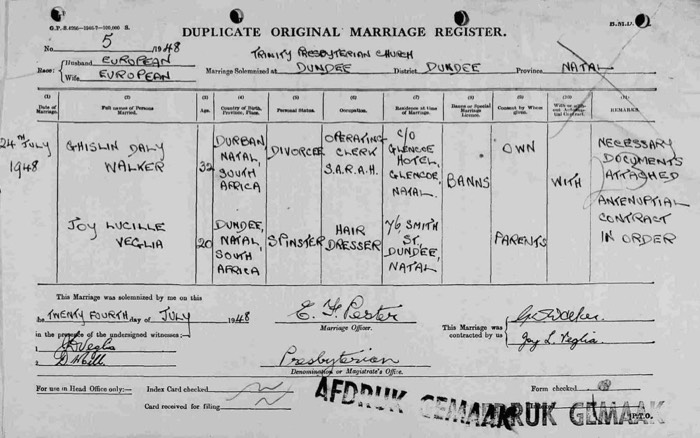 G.P.-S. B.M.D.
DUPLICATE ORIGINAL MARRIAGE REGISTER.
No. 5 1948
TRINITY PRESBYTERIAN CHURCH
Race: Husband EUROPEAN
Wife EUROPEAN
Marriage Solemnized at DUNDEE District DUNDEE Province NATAL
(1) (2) (3) (4) (5) (6) (7) (8) (9) (10) (11)
Date of Marriage. Full names of Persons Married. Age. Country of Birth, Province, Place. Personal Status. Occupation. Residence at time of Marriage. Banns or Special Marriage Licence. Consent by Whom given. With or without Antenuptial Contract. REMARKS.
24TH JULY 1948
GHISLIN DALY WALKER
32
DURBAN NATAL, SOUTH AFRICA
DIVORCEE
OPERATING CLERK S.A.R.A.H.
C/O GLENCOE HOTEL, GLENCOE, NATAL.
BANNS
OWN
WITH
NECESSARY DOCUMENTS ATTACHED
ANTENUPTIAL CONTRACT IN ORDER
JOY LUCILLE VEGLIA
20
DUNDEE, NATAL, SOUTH AFRICA
SPINSTER
HAIR DRESSER
76, SMITH ST, DUNDEE, NATAL
PARENTS
This Marriage was solemnized by me on this
the TWENTY FOURTH day of JULY 1948
in the presence of the undersigned witnesses:—
Veglia
Marriage Officer.
Presbyterian
Denomination or Magistrate's Office.
This Marriage was contracted by us
Joy L. Veglia
For use in Head Office only:— Index Card checked
Card received for filing
Form checked
AFDRUK GEMAAK
AFDRUK GEMAAK
P.T.O.